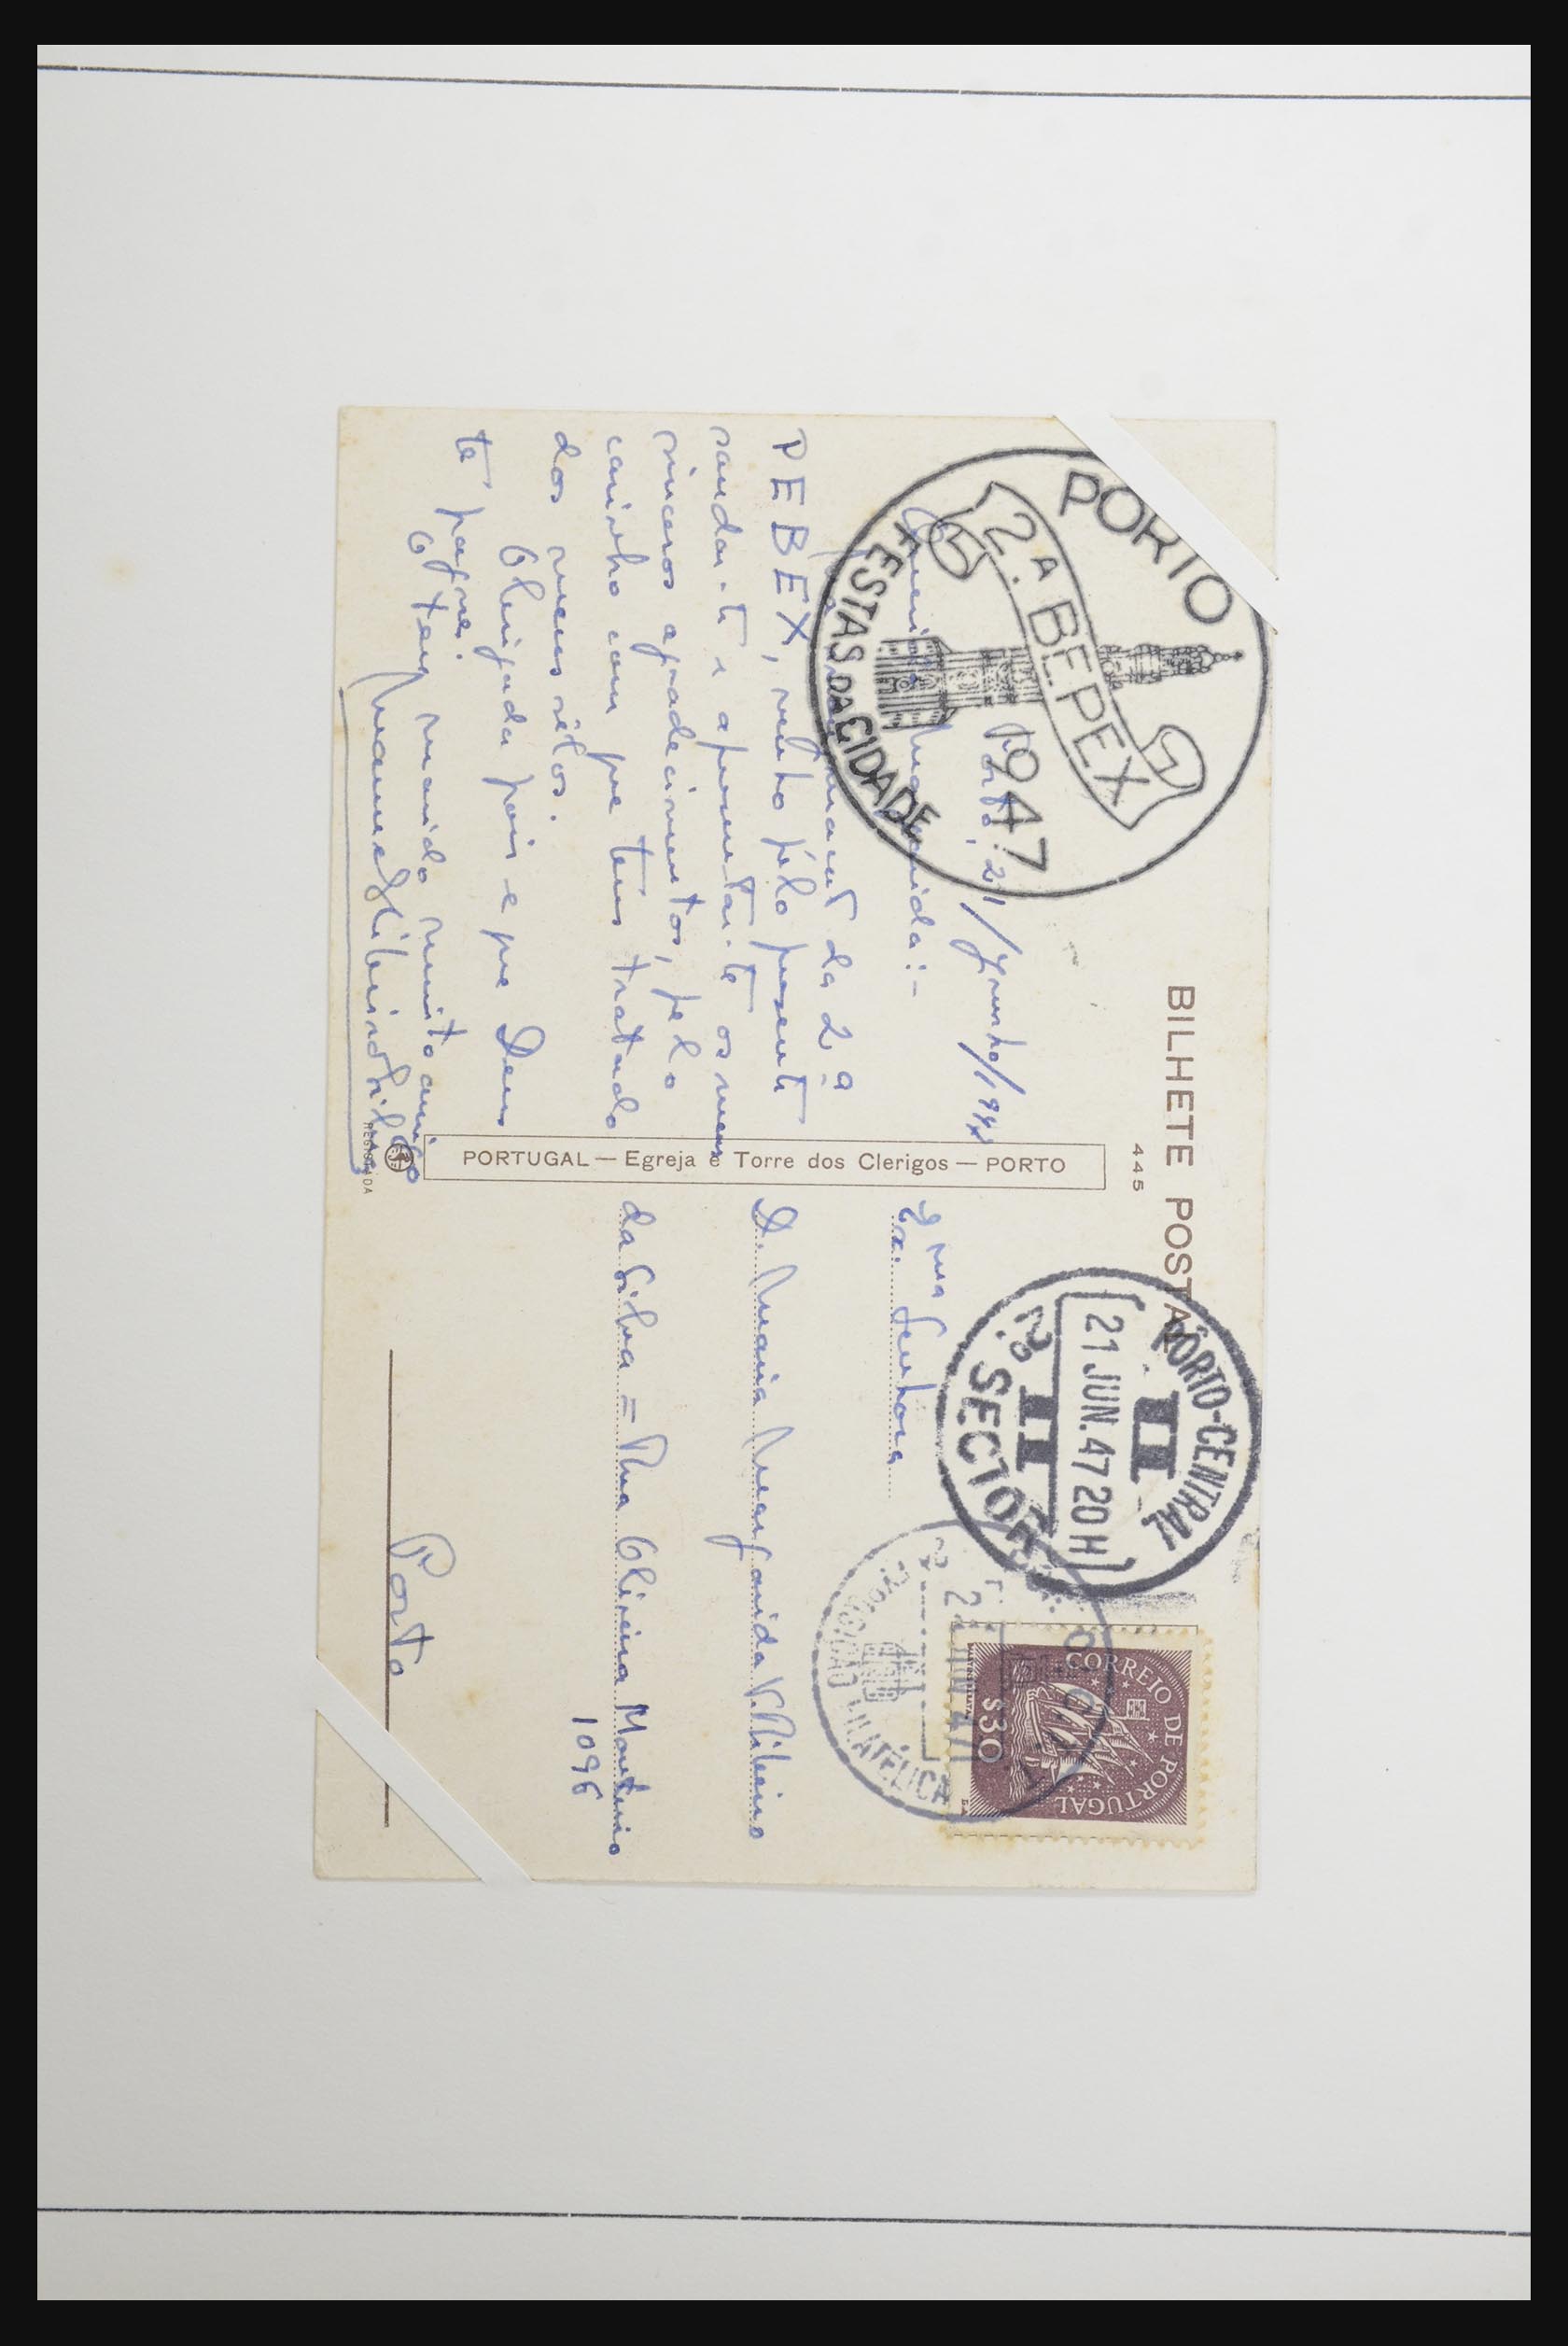 BILHETE POSTAL
445
PORTO
2.ª BEPEX
1947
FESTAS DA CIDADE
Porto, 21/Junho/1947
Querida Margarida:-
da 2ª
PEBEX, venho pelo presente
saudar-te e apresentar-te os meus
sinceros agradecimentos, pelo
carinho com que tens tratado
dos meus sêlos.
Obrigada pois e que Deus
te pague.
O teu marido muito amigo
PORTUGAL — Egreja e Torre dos Clerigos — PORTO
REGISTADA
PÔRTO-CENTRAL
II
21 JUN.47 20H
II
2.º SECTOR
FILATÉLICA
CORREIO DE PORTUGAL
$30
Ex.ma Senhora
D. Maria Margarida V. Ribeiro
da Silva = Rua Oliveira Monteiro
1096
Porto